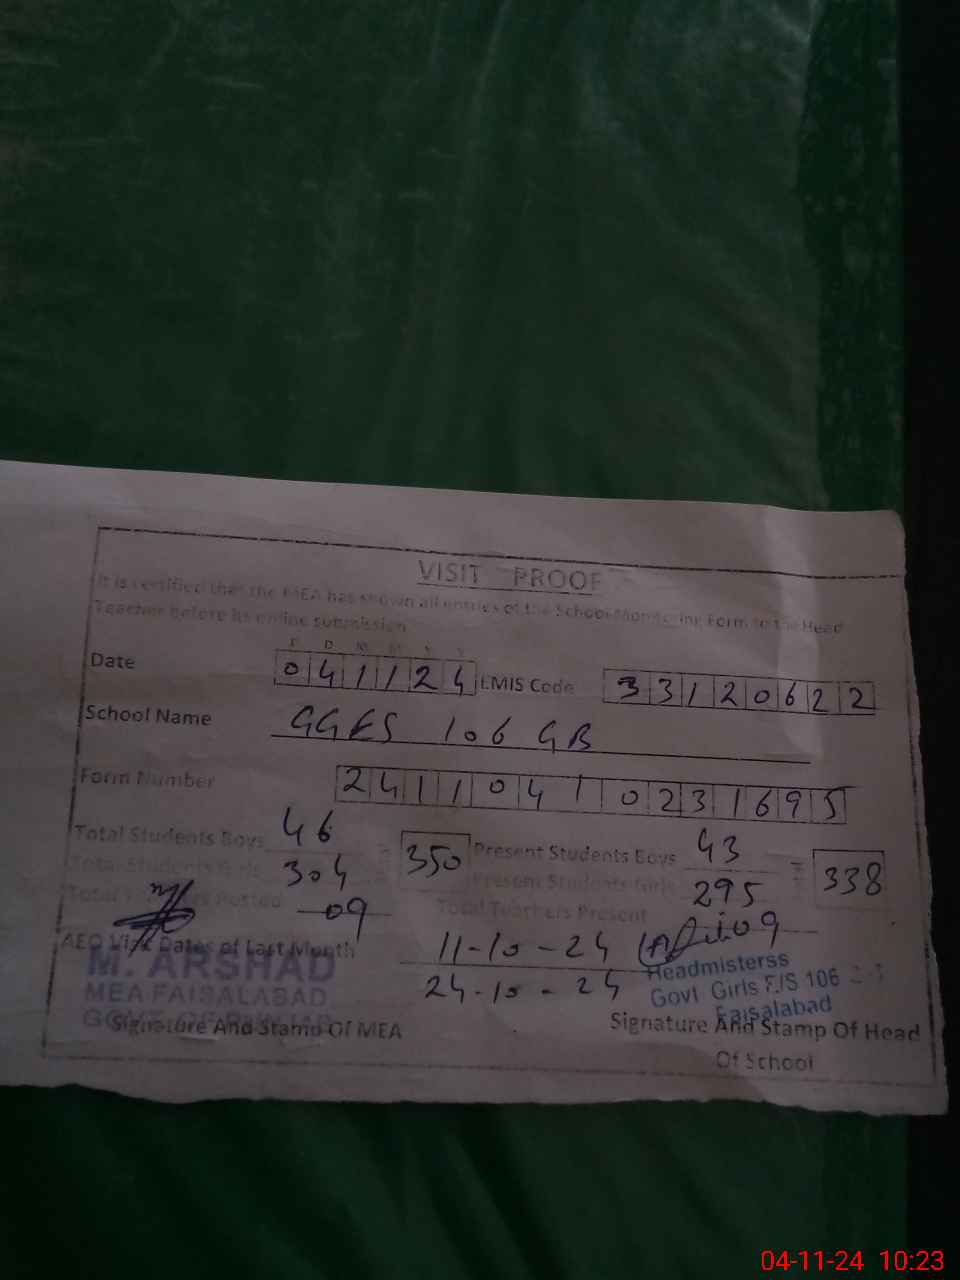 VISIT PROOF
It is certified that the MEA has shown all entries of the School Monitoring Form to the Head
Teacher before its online submission
D D M M Y Y
Date 041124 EMIS Code 33120622
School Name GGES 106 GB
Form Number 24110410231695
Total Students Boys 46 = 350 Present Students Boys 43 = 338
Total Students Girls 304 Present Students Girls 295
Total Teachers Posted 09 Total Teachers Present 09
AEO Visit Dates of Last Month 11-10-24
24-10-24
M. ARSHAD
MEA FAISALABAD
GOVT. OF PUNJAB
Signature And Stamp Of MEA
Headmisterss
Govt Girls E/S 106
Faisalabad
Signature And Stamp Of Head
Of School
04-11-24 10:23